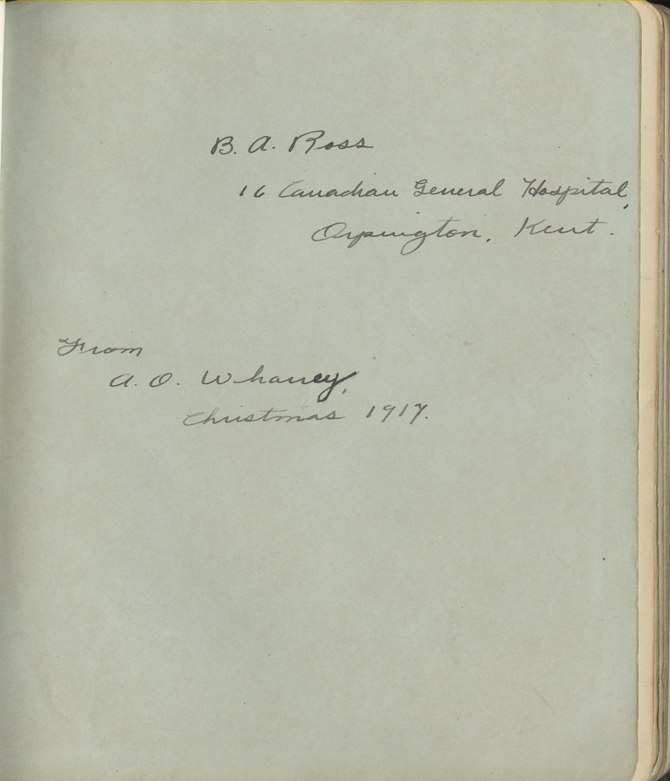 B. A. Ross
16 Canadian General Hospital,
Orpington, Kent.
From
A. O. Wharrey,
Christmas 1917.